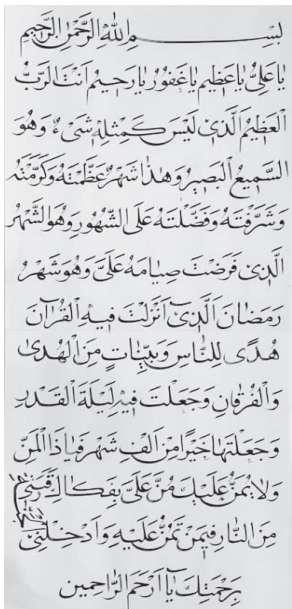 بِسْمِ اللهِ الرَّحْمٰنِ الرَّحِيمِ
يَا عَلِيُّ يَا عَظِيمُ يَا غَفُورُ يَا رَحِيمُ اَنْتَ الرَّبُّ
الْعَظِيمُ الَّذِي لَيْسَ كَمِثْلِهِ شَيْءٌ وَهُوَ
السَّمِيعُ الْبَصِيرُ وَهٰذَا شَهْرٌ عَظَّمْتَهُ وَكَرَّمْتَهُ
وَشَرَّفْتَهُ وَفَضَّلْتَهُ عَلَى الشُّهُورِ وَهُوَ الشَّهْرُ
الَّذِي فَرَضْتَ صِيَامَهُ عَلَيَّ وَهُوَ شَهْرُ
رَمَضَانَ الَّذِي اَنْزَلْتَ فِيهِ الْقُرْآنَ
هُدًى لِلنَّاسِ وَبَيِّنَاتٍ مِنَ الْهُدٰى
وَالْفُرْقَانِ وَجَعَلْتَ فِيهِ لَيْلَةَ الْقَدْرِ
وَجَعَلْتَهَا خَيْرًا مِنْ اَلْفِ شَهْرٍ فَيَا ذَا الْمَنِّ
وَلَا يُمَنُّ عَلَيْكَ مُنَّ عَلَيَّ بِفَكَاكِ رَقَبَتِي
مِنَ النَّارِ فِيمَنْ تَمُنُّ عَلَيْهِ وَاَدْخِلْنِي
بِرَحْمَتِكَ يَا اَرْحَمَ الرَّاحِمِينَ